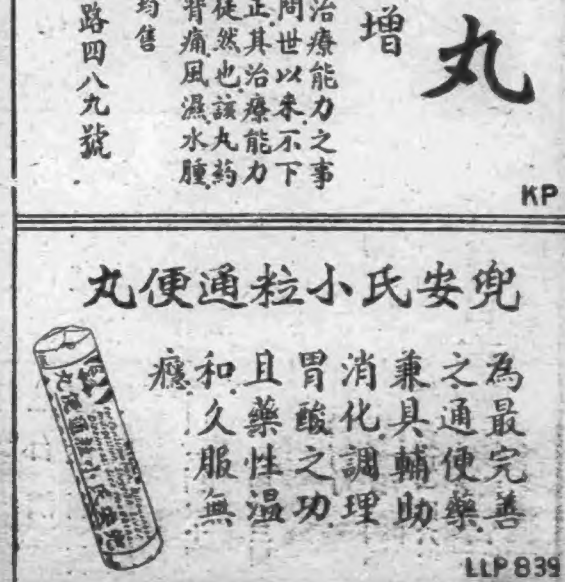 丸
增
治療能力之事
問世以来不下
正其治療能力
徒然也該丸药
背痛風濕水腫
均售
路四八九號
KP
兜安氏小粒通便丸
為最完善
之通便藥
兼具輔助
消化調理
胃酸之功
且藥性温
和久服無
癮
LLP 839